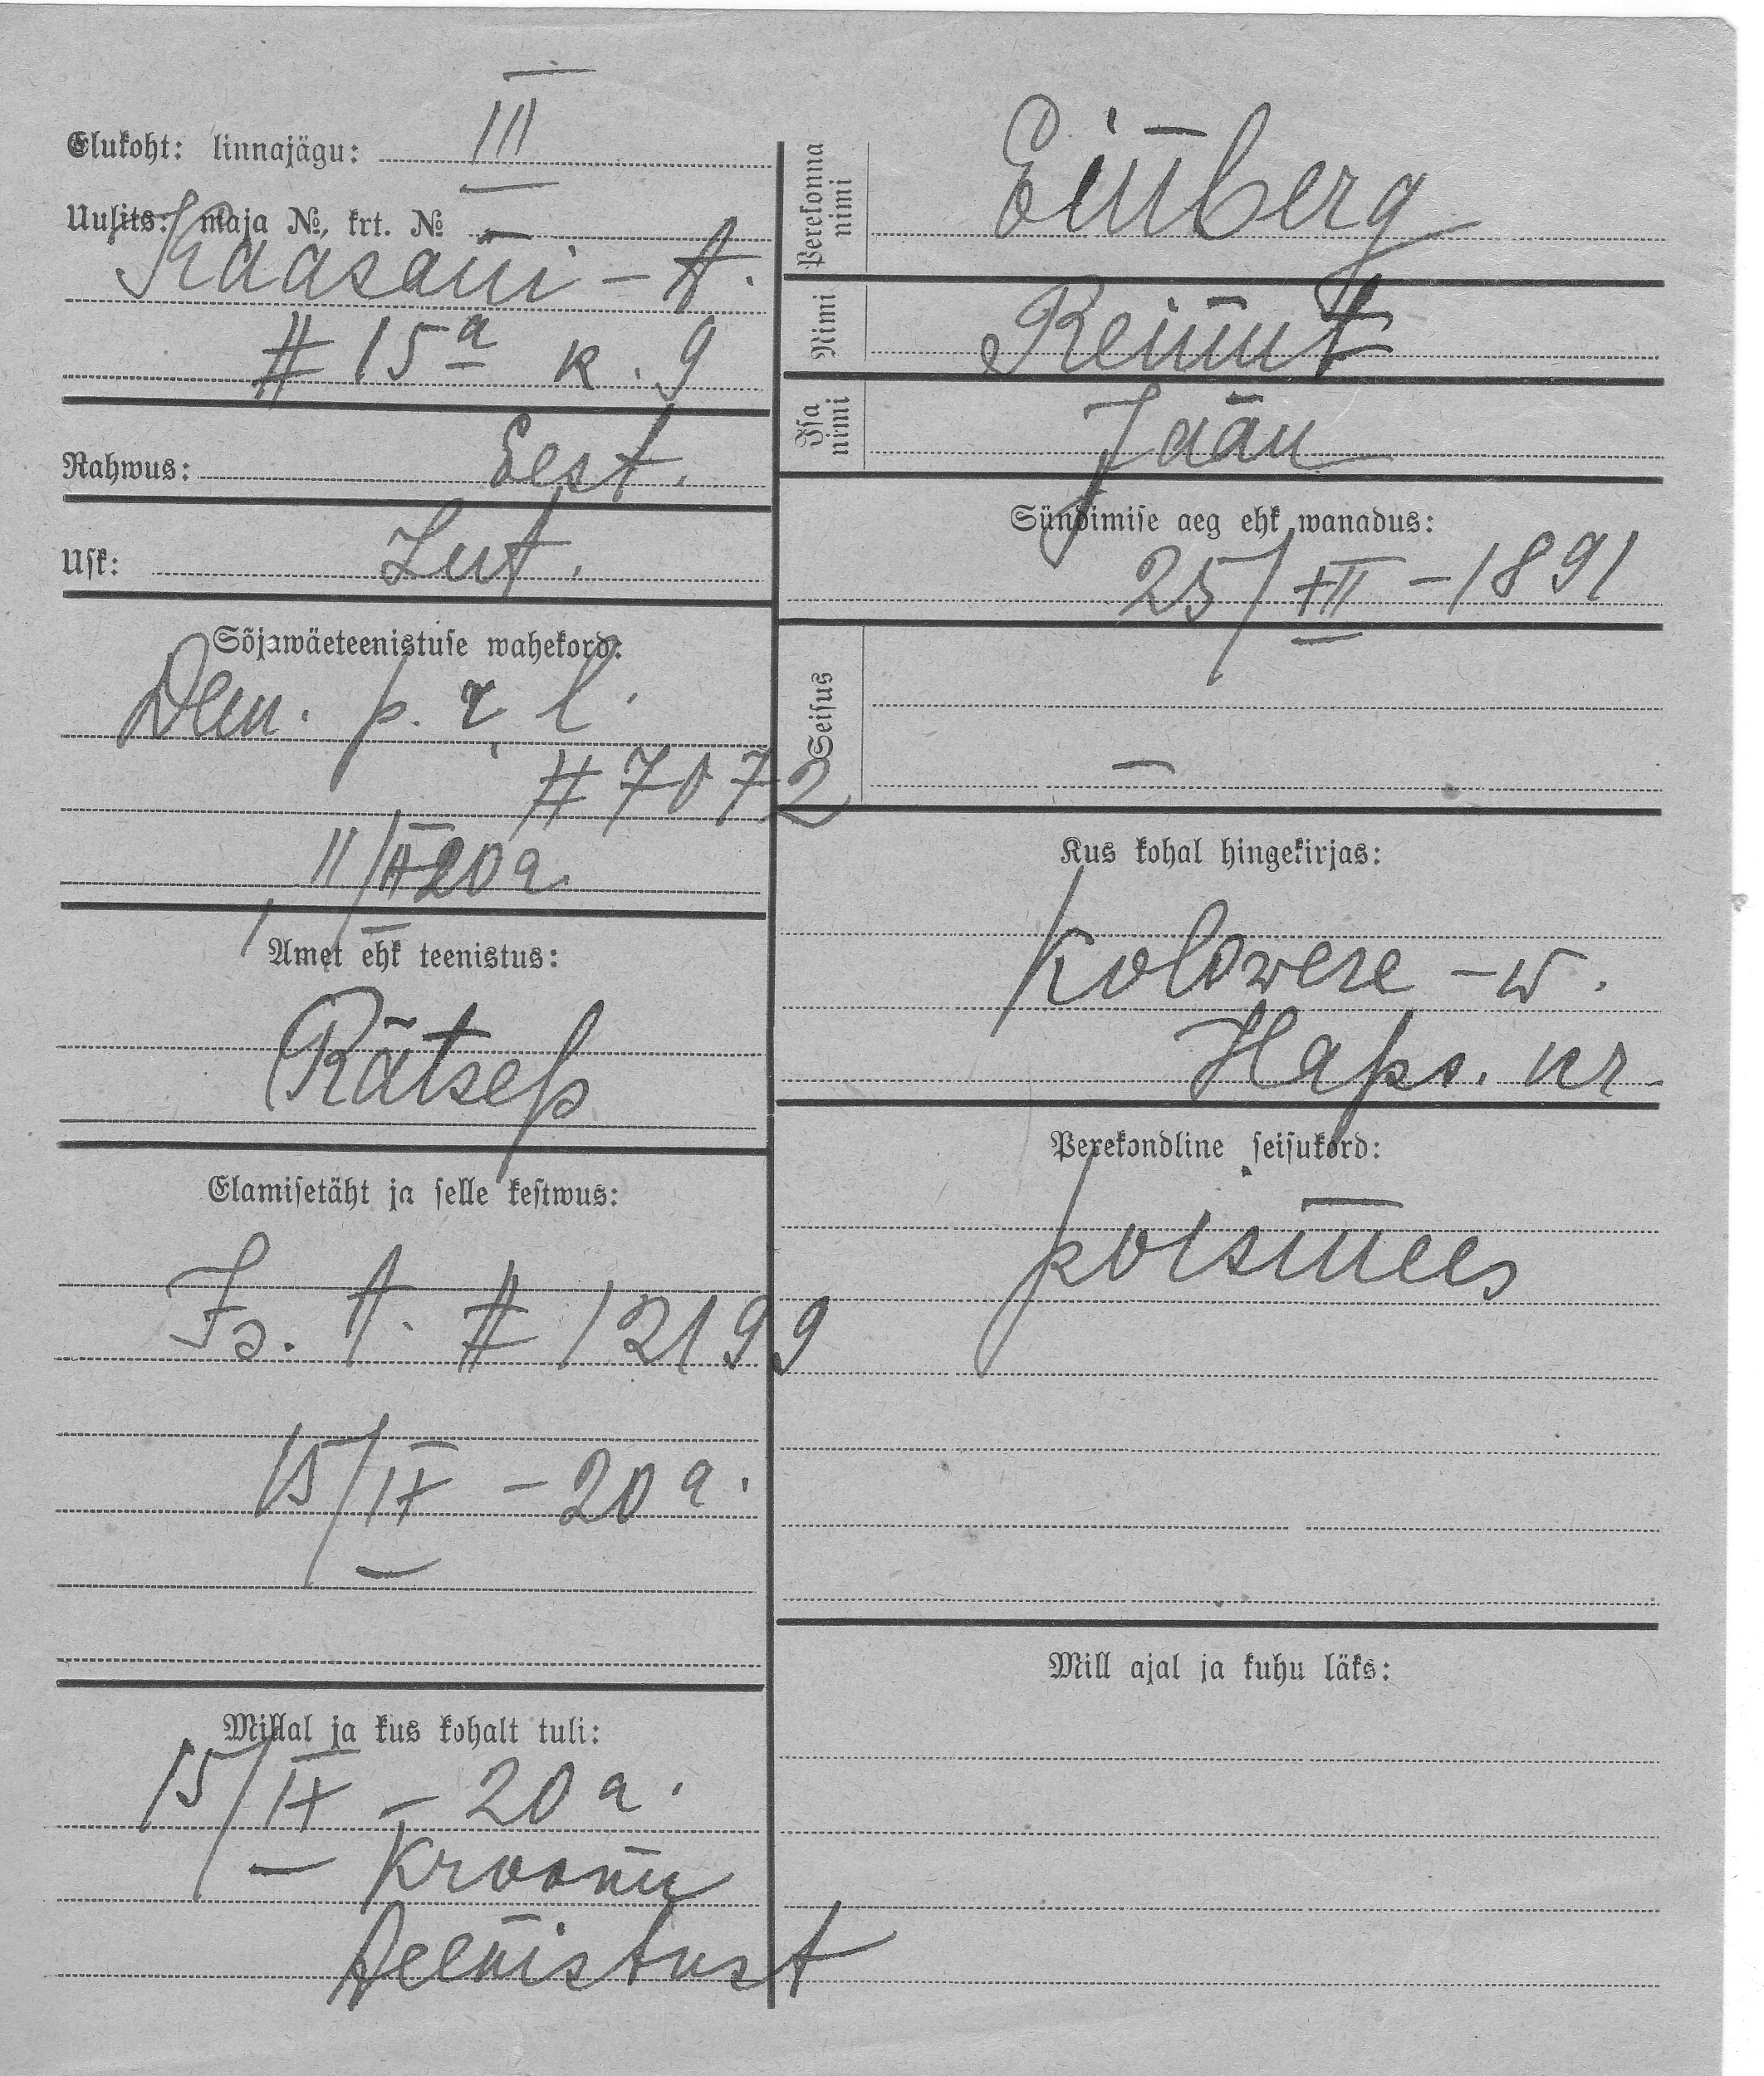 Elukoht: linnajägu: III
Uulits: maja №, krt. № –
Kaasani – t.
# 15a k. 9
Rahwus: Eest.
Usk: Lut.
Sõjawäeteenistuse wahekord:
Dem. p. r. l.
# 7072
11/II 20 a.
Amet ehk teenistus:
Rätsep
Elamisetäht ja selle kestwus:
Is. t. # 12199
15/IX – 20 a.
Millal ja kus kohalt tuli:
15/IX – 20 a.
– Kroonu
teenistust
Perekonna nimi
Einberg
Nimi
Isa nimi
Jaan
Sündimise aeg ehk wanadus:
25/XII – 1891
Seisus
–
Kus kohal hingekirjas:
Kolowere – w.
Haps. kr.
Perekondline seisukord:
poismees
Mill ajal ja kuhu läks: